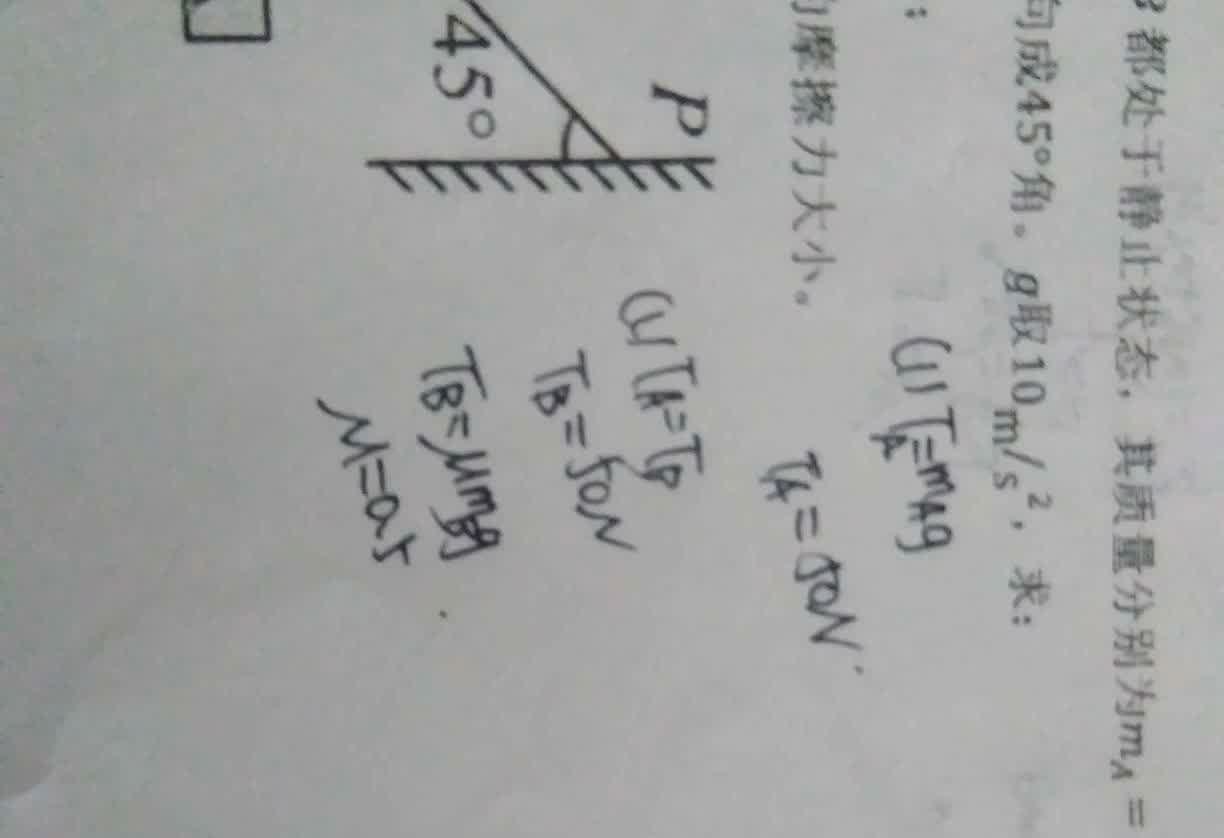 都处于静止状态，其质量分别为m_A =
向成45°角。g取10m/s²，求：
：
的摩擦力大小。
P
45°
(1) T_A=m_Ag
T_A=50N
T_B=50N
T_B=μm_Bg
μ=0.5